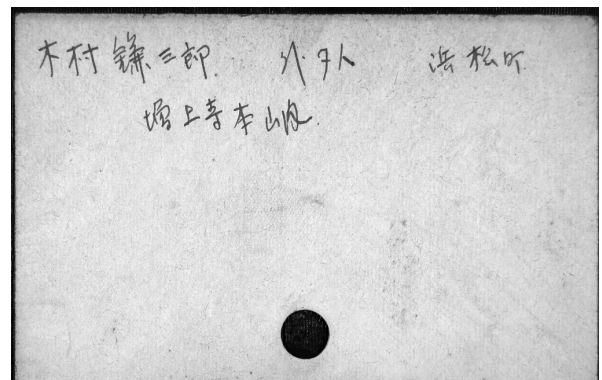 木村鎌三郎 外7人 浜松町
増上寺本山内